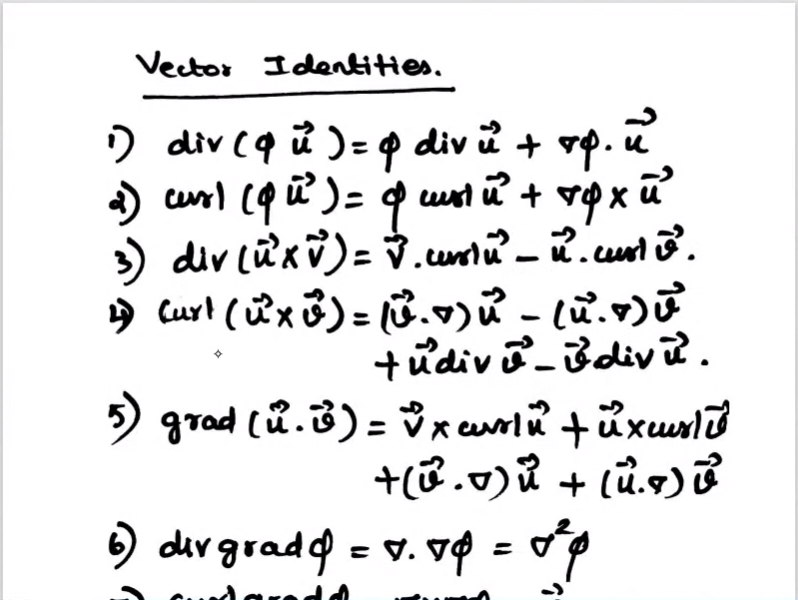 Vector Identities.
1) div (φ u⃗) = φ div u⃗ + ∇φ . u⃗
2) curl (φ u⃗) = φ curl u⃗ + ∇φ × u⃗
3) div (u⃗ × v⃗) = v⃗ . curl u⃗ – u⃗ . curl v⃗ .
4) Curl (u⃗ × v⃗) = (v⃗ . ∇) u⃗ – (u⃗ . ∇) v⃗
+ u⃗ div v⃗ – v⃗ div u⃗ .
5) grad (u⃗ . v⃗) = v⃗ × curl u⃗ + u⃗ × curl v⃗
+ (v⃗ . ∇) u⃗ + (u⃗ . ∇) v⃗
6) div grad φ = ∇ . ∇φ = ∇²φ